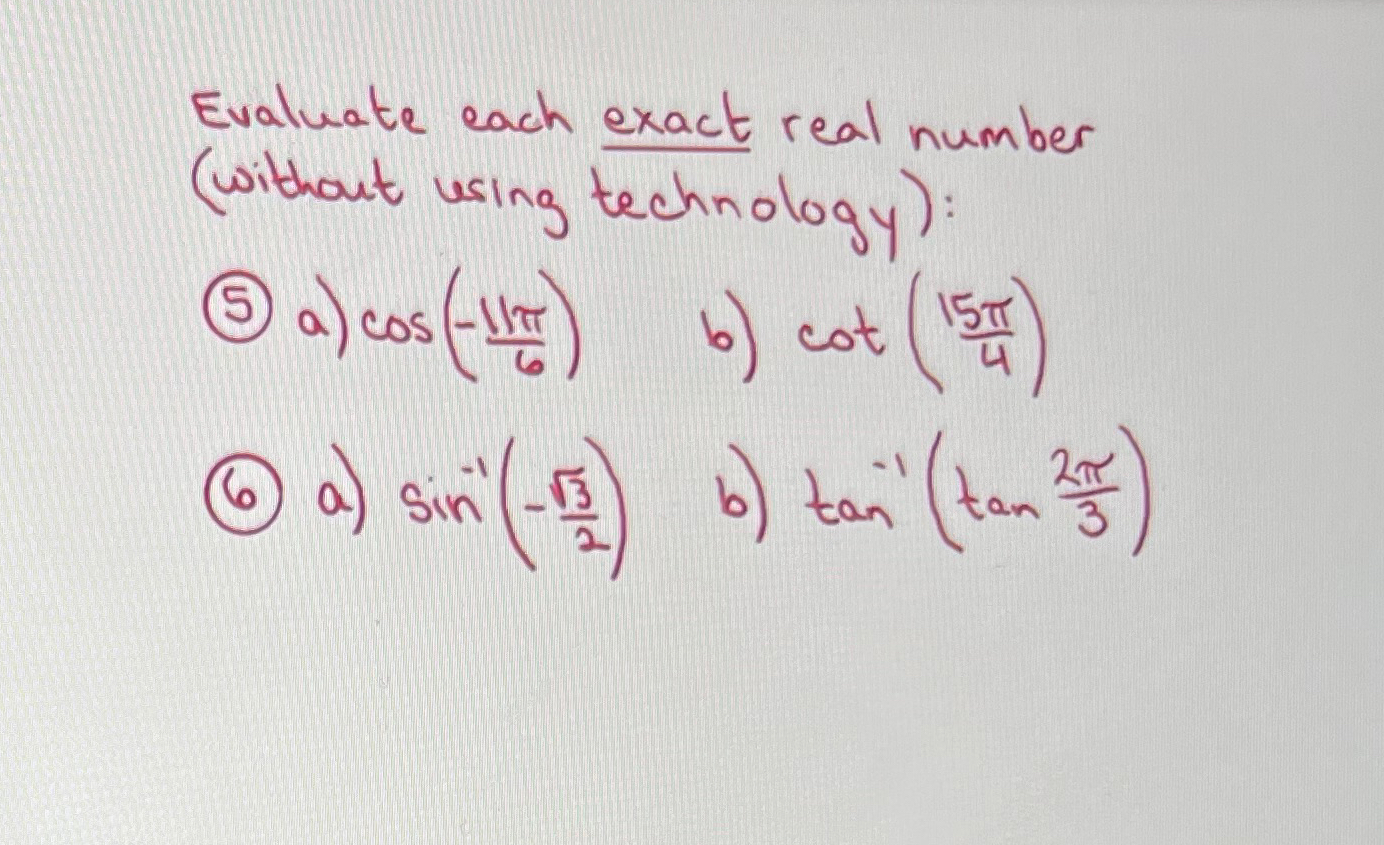 Evaluate each exact real number
(without using technology):
⑤ a) cos(-11π/6) b) cot(15π/4)
⑥ a) sin⁻¹(-√3/2) b) tan⁻¹(tan 2π/3)